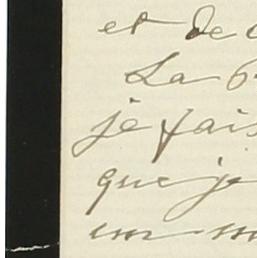 et de
La
je fais
que je
un